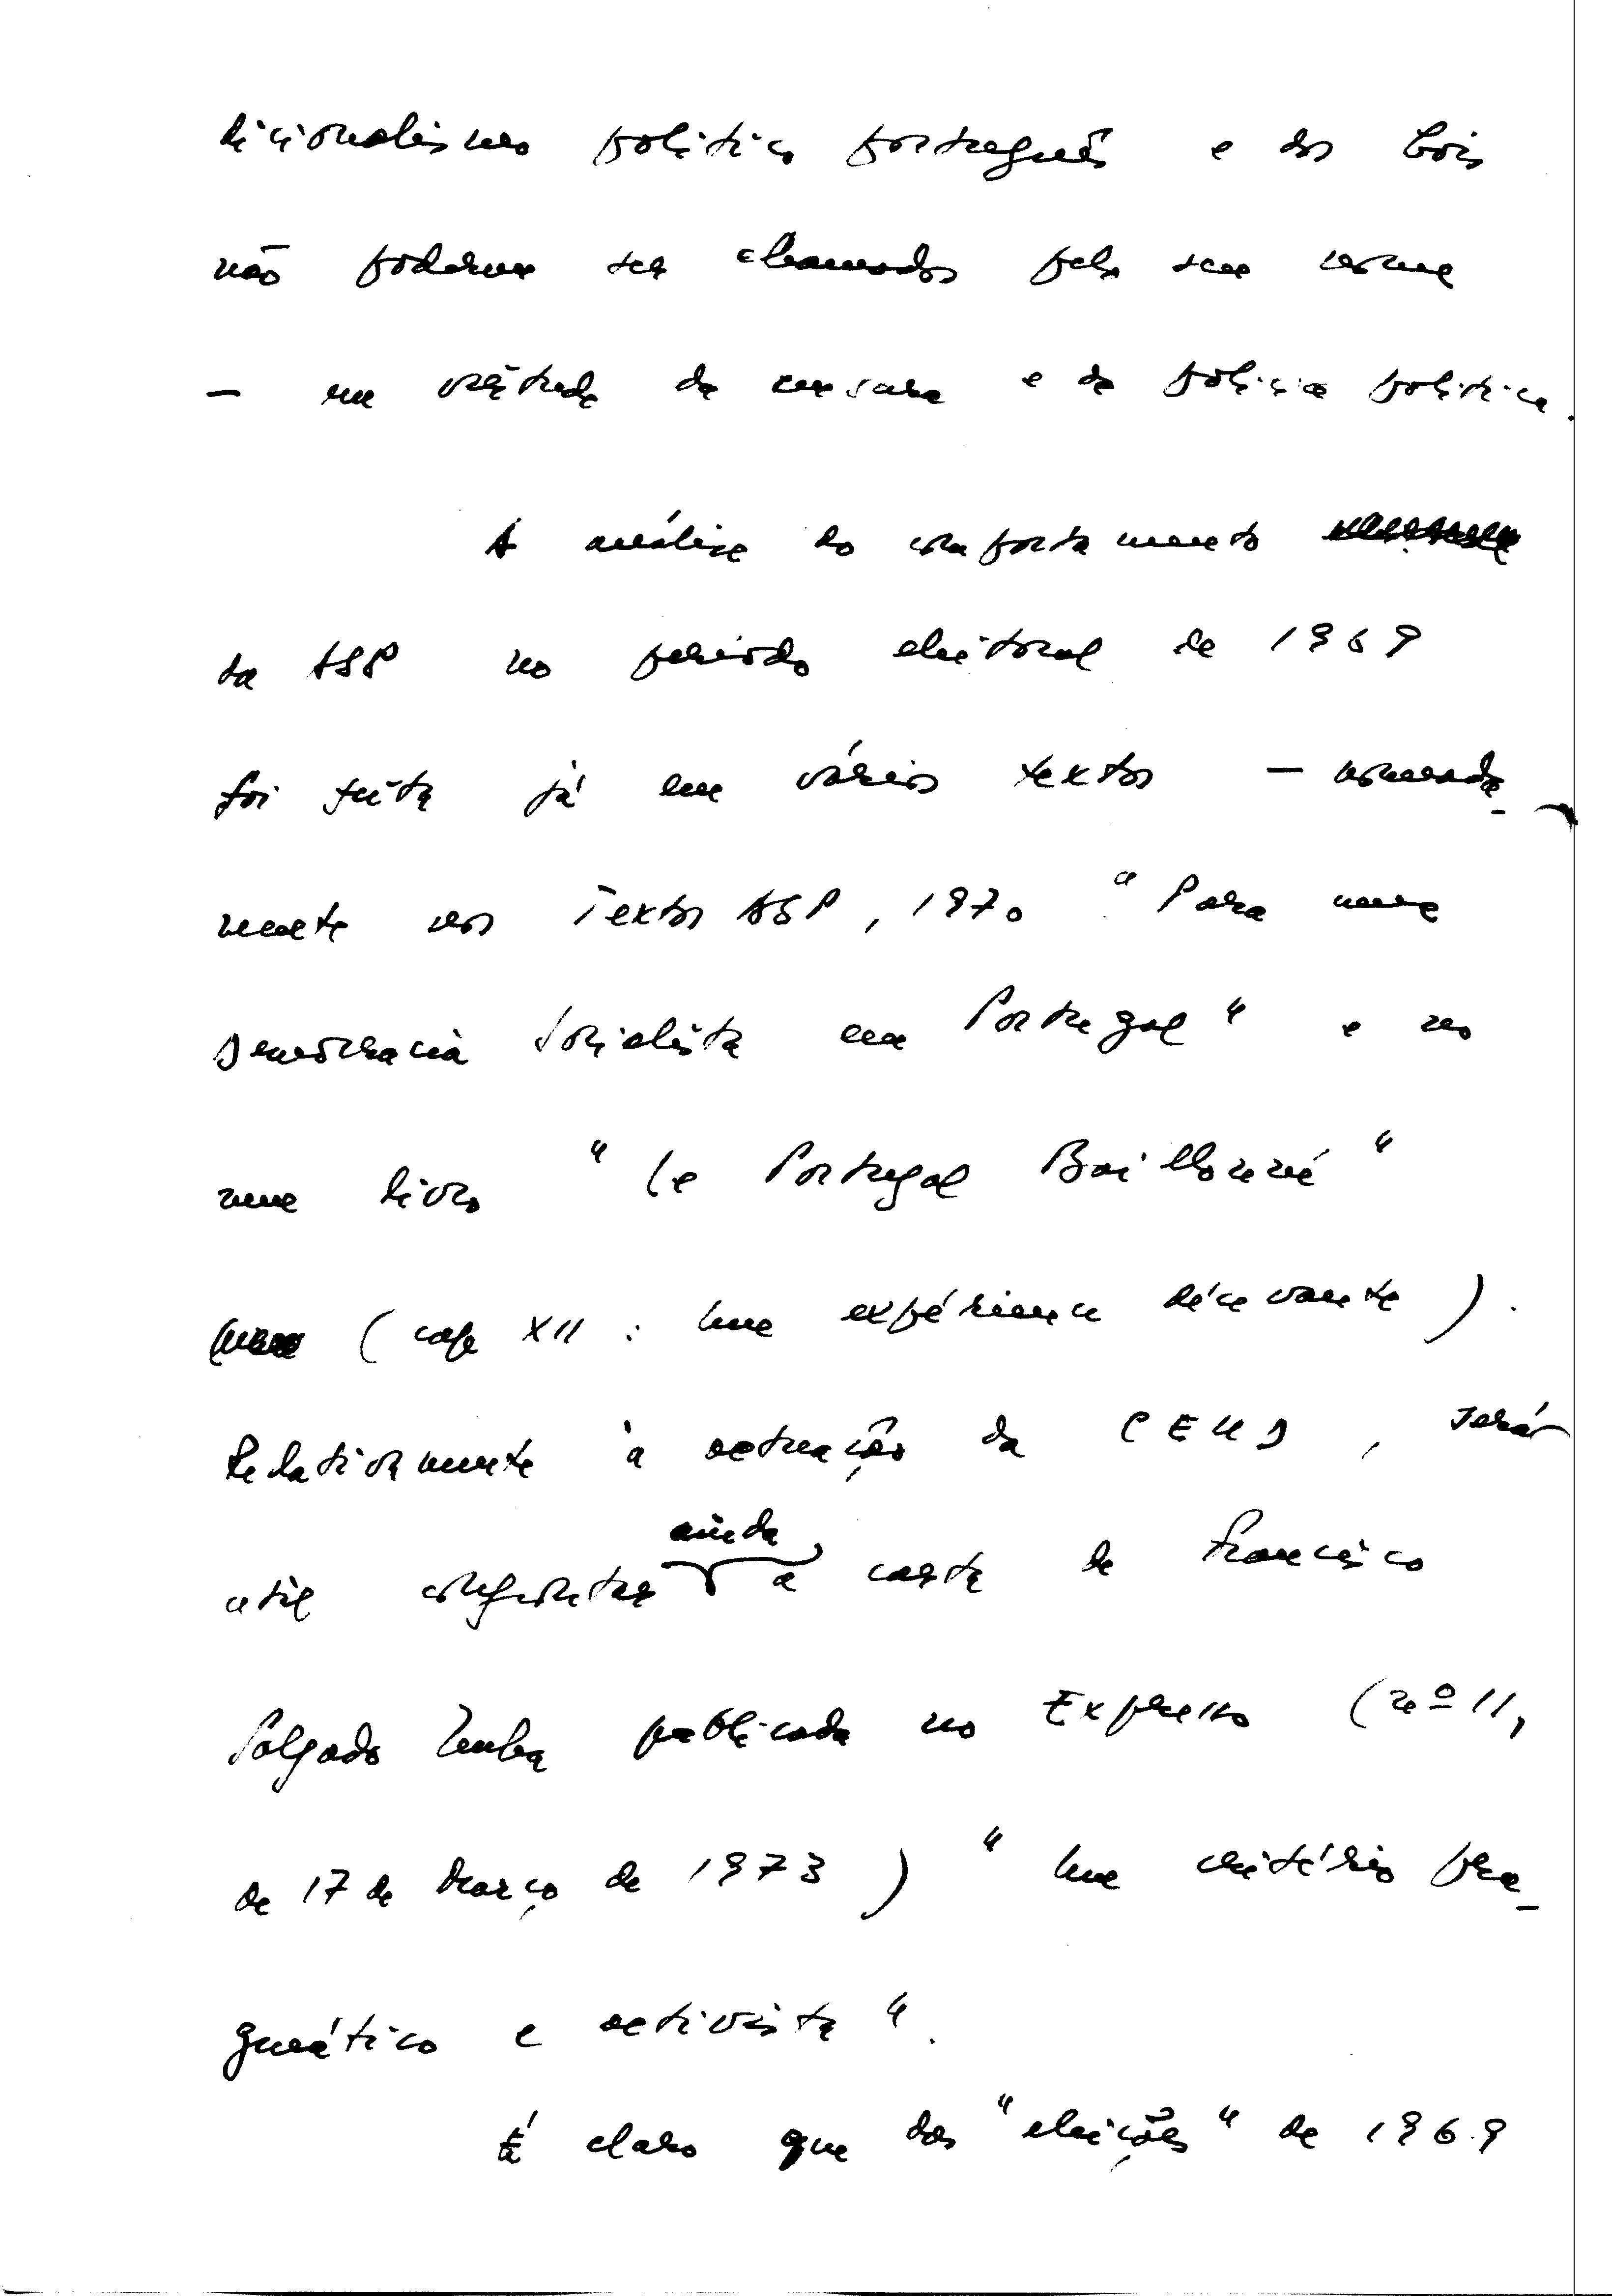 dicionalismo político português e dos bois
não poderem ser chamados pelo seu nome
– em virtude da censura e da polícia política.
A análise do comportamento
da ASP no período eleitoral de 1969
foi feita já em vários textos – nomeada-
mente nos Textos ASP, 1970 "Para uma
Democracia Socialista em Portugal" e no
meu livro "Le Portugal Baillonné"
(cap XII : Une expérience décevante).
Relativamente à actuação da CEUD, será
util confrontar ainda a carta de Francisco
Salgado Zenha publicada no Expresso (nº 11,
de 17 de Março de 1973) "Um critério pra-
gmático e activista".
É claro que das "eleições" de 1969